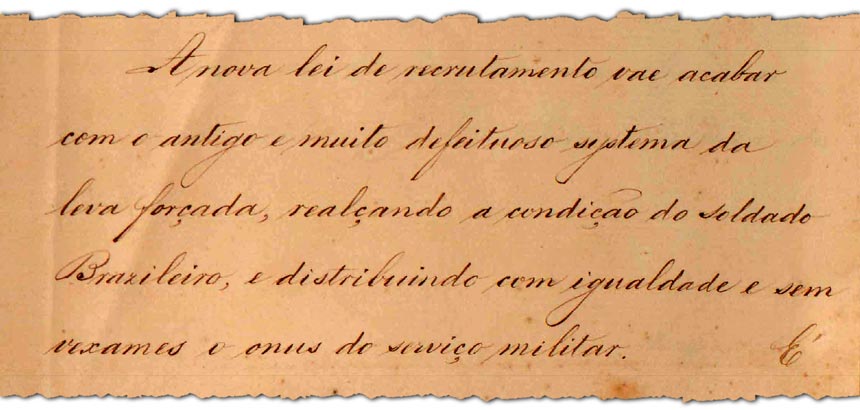 A nova lei de recrutamento vae acabar
com o antigo e muito defeituoso systema da
leva forçada, realçando a condição do soldado
Brazileiro, e distribuindo com igualdade e sem
vexames o onus do serviço militar. É